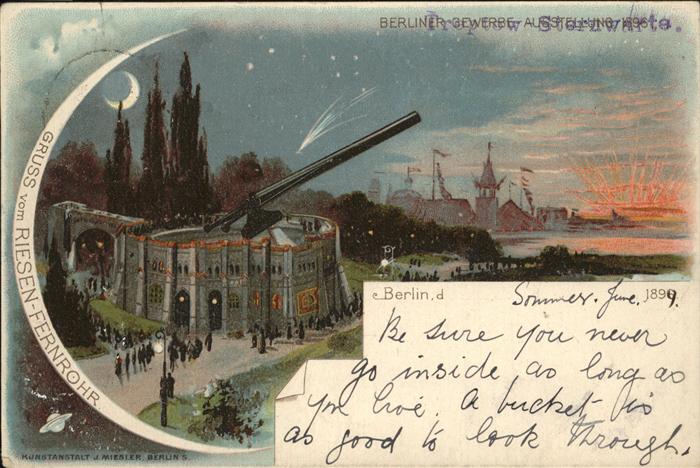 BERLINER GEWERBE-AUSSTELLUNG 1896.
Treptow Sternwarte.
GRUSS vom RIESEN-FERNROHR.
Berlin, d Sommer. June. 1899.
Be sure you never
go inside as long as
you live. A bucket is
as good to look through.
KUNSTANSTALT J. MIESLER, BERLIN S.